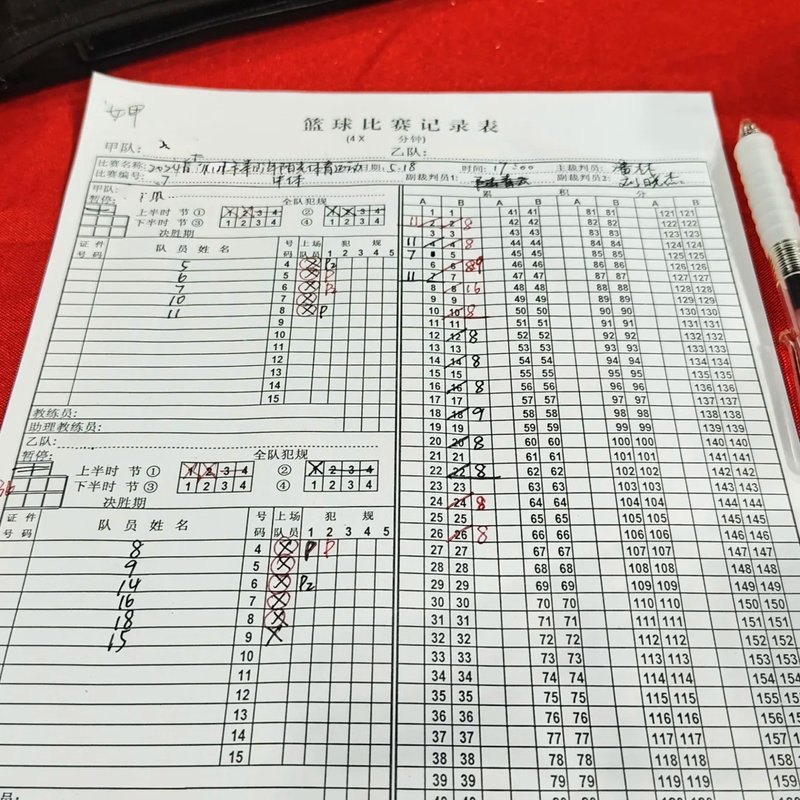 女甲
篮球比赛记录表
(4X 分钟)
甲队:
乙队:
比赛名称: 日期: 5.18 时间: 17:00 主裁判员:
比赛编号: 7 副裁判员1: 副裁判员2:
甲队:
暂停: 全队犯规
上半时 节① 1 2 3 4 ② 1 2 3 4
下半时 节③ 1 2 3 4 ④ 1 2 3 4
决胜期
证件号码 队员姓名 号码 上场队员 犯规 1 2 3 4 5
5 4 X P2
6 5 X P
7 6 X
10 7 X
11 8 X P
9
10
11
12
13
14
15
教练员:
助理教练员:
乙队:
暂停: 全队犯规
上半时 节① 1 2 3 4 ② 1 2 3 4
下半时 节③ 1 2 3 4 ④ 1 2 3 4
决胜期
证件号码 队员姓名 号码 上场队员 犯规 1 2 3 4 5
8 4 X P P
9 5 X
14 6 X P2
16 7 X
18 8 X
15 9 X
10
11
12
13
14
15
教练员:
累积分
A B A B A B A B
1 1 41 41 81 81 121 121
11 2 2 8 42 42 82 82 122 122
3 3 43 43 83 83 123 123
11 4 4 8 44 44 84 84 124 124
7 5 45 45 85 85 125 125
6 6 46 46 86 86 126 126
11 7 7 47 47 87 87 127 127
8 8 16 48 48 88 88 128 128
9 9 49 49 89 89 129 129
10 10 8 50 50 90 90 130 130
11 11 51 51 91 91 131 131
12 12 8 52 52 92 92 132 132
13 13 53 53 93 93 133 133
14 14 8 54 54 94 94 134 134
15 15 55 55 95 95 135 135
16 16 8 56 56 96 96 136 136
17 17 57 57 97 97 137 137
18 18 9 58 58 98 98 138 138
19 19 59 59 99 99 139 139
20 20 8 60 60 100 100 140 140
21 21 61 61 101 101 141 141
22 22 8 62 62 102 102 142 142
23 23 63 63 103 103 143 143
24 24 8 64 64 104 104 144 144
25 25 65 65 105 105 145 145
26 26 8 66 66 106 106 146 146
27 27 67 67 107 107 147 147
28 28 68 68 108 108 148 148
29 29 69 69 109 109 149 149
30 30 70 70 110 110 150 150
31 31 71 71 111 111 151 151
32 32 72 72 112 112 152 152
33 33 73 73 113 113 153 153
34 34 74 74 114 114 154 154
35 35 75 75 115 115 155 155
36 36 76 76 116 116 156
37 37 77 77 117 117 157
38 38 78 78 118 118 158
39 39 79 79 119 119 159